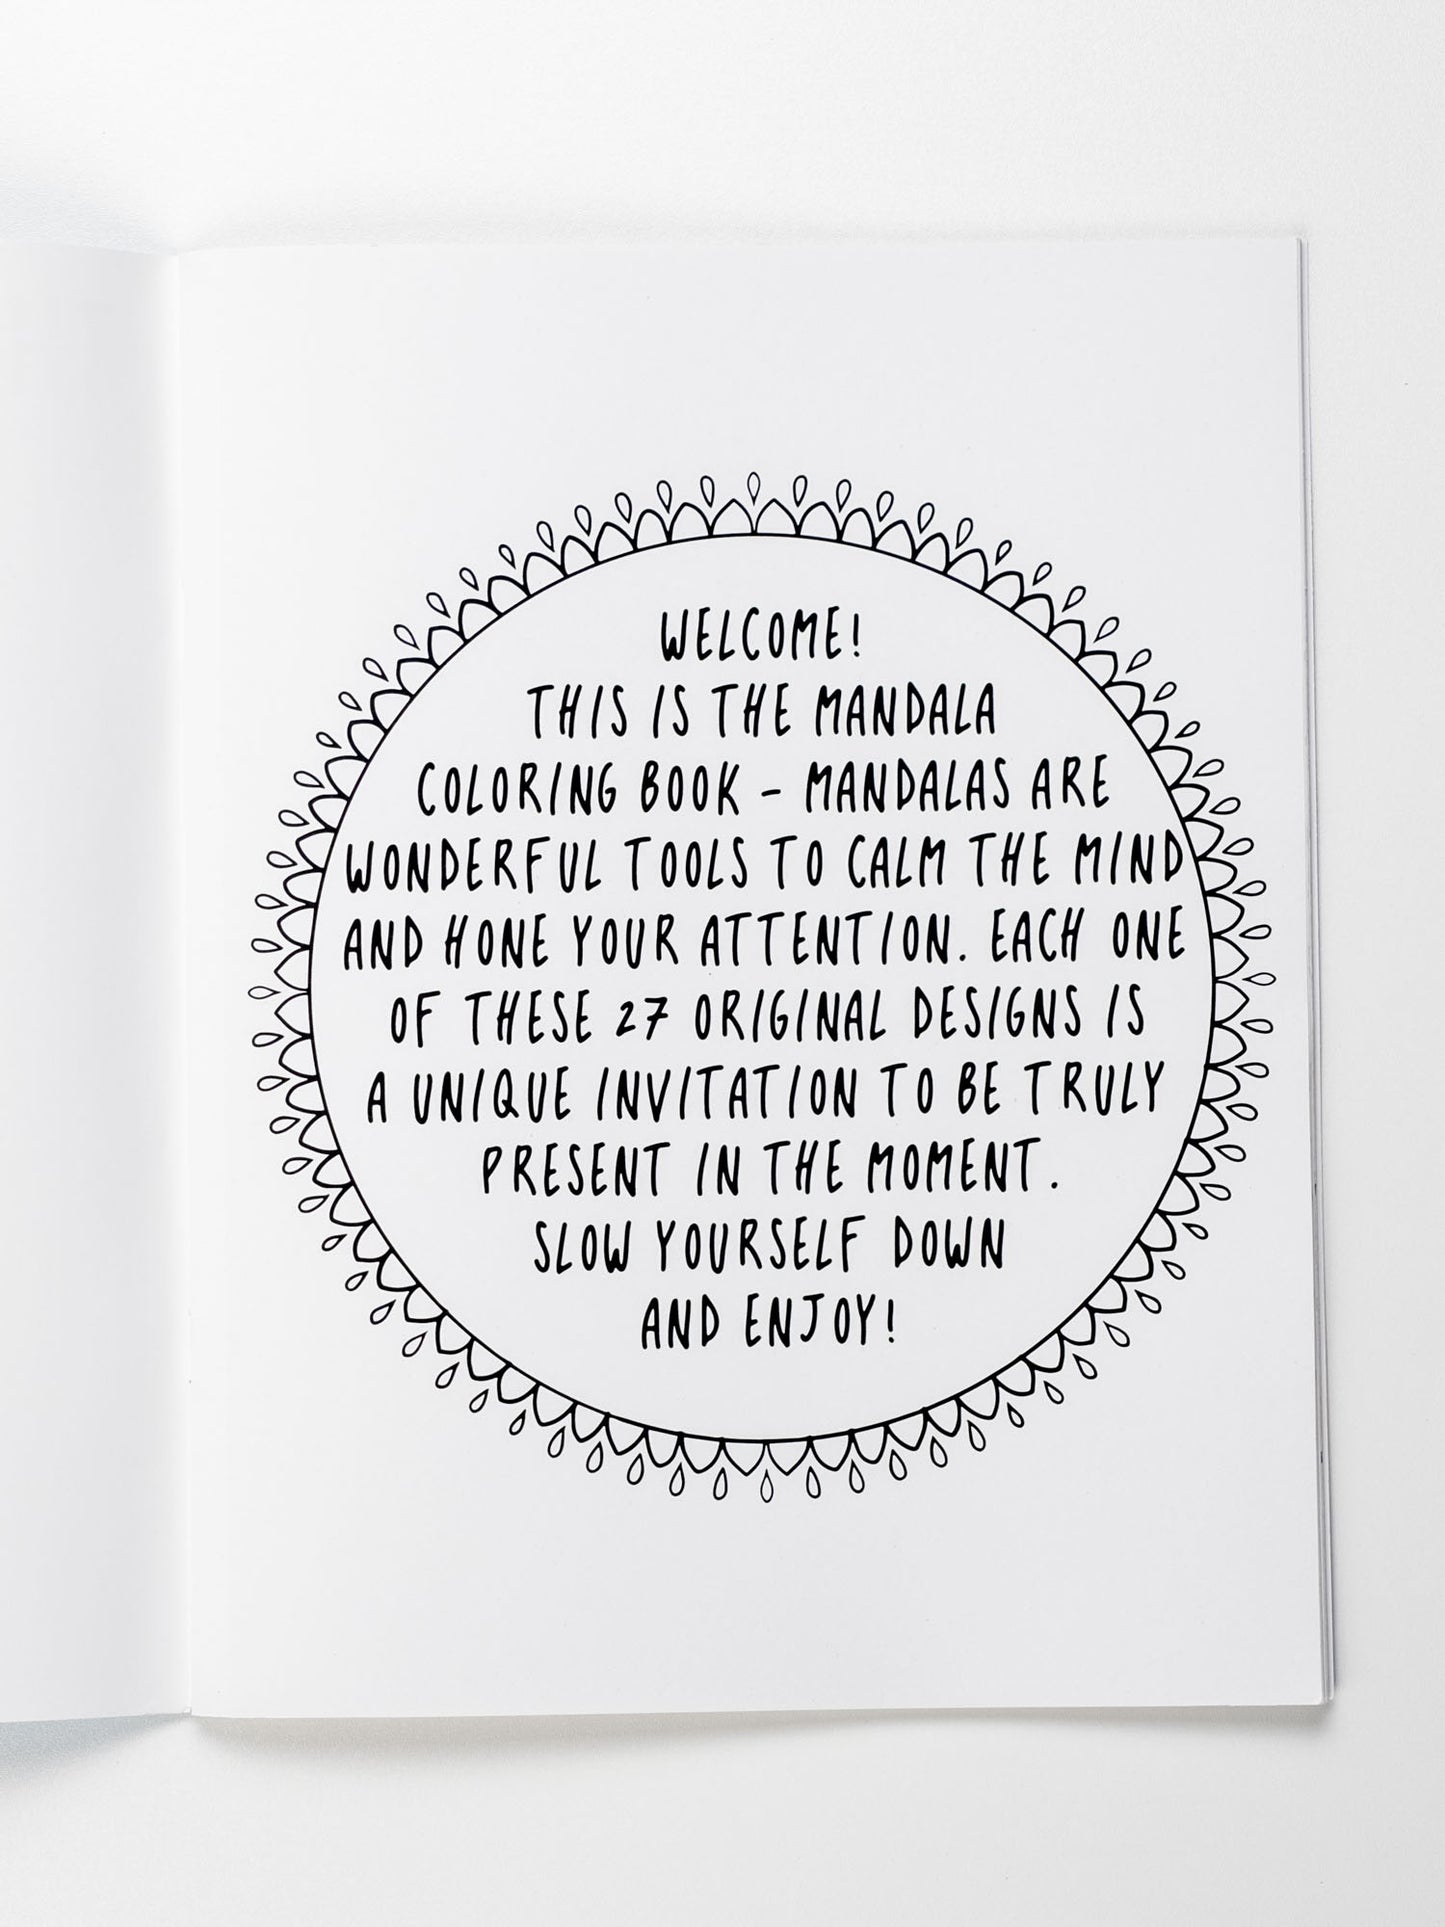 WELCOME!
THIS IS THE MANDALA
COLORING BOOK - MANDALAS ARE
WONDERFUL TOOLS TO CALM THE MIND
AND HONE YOUR ATTENTION. EACH ONE
OF THESE 27 ORIGINAL DESIGNS IS
A UNIQUE INVITATION TO BE TRULY
PRESENT IN THE MOMENT.
SLOW YOURSELF DOWN
AND ENJOY!